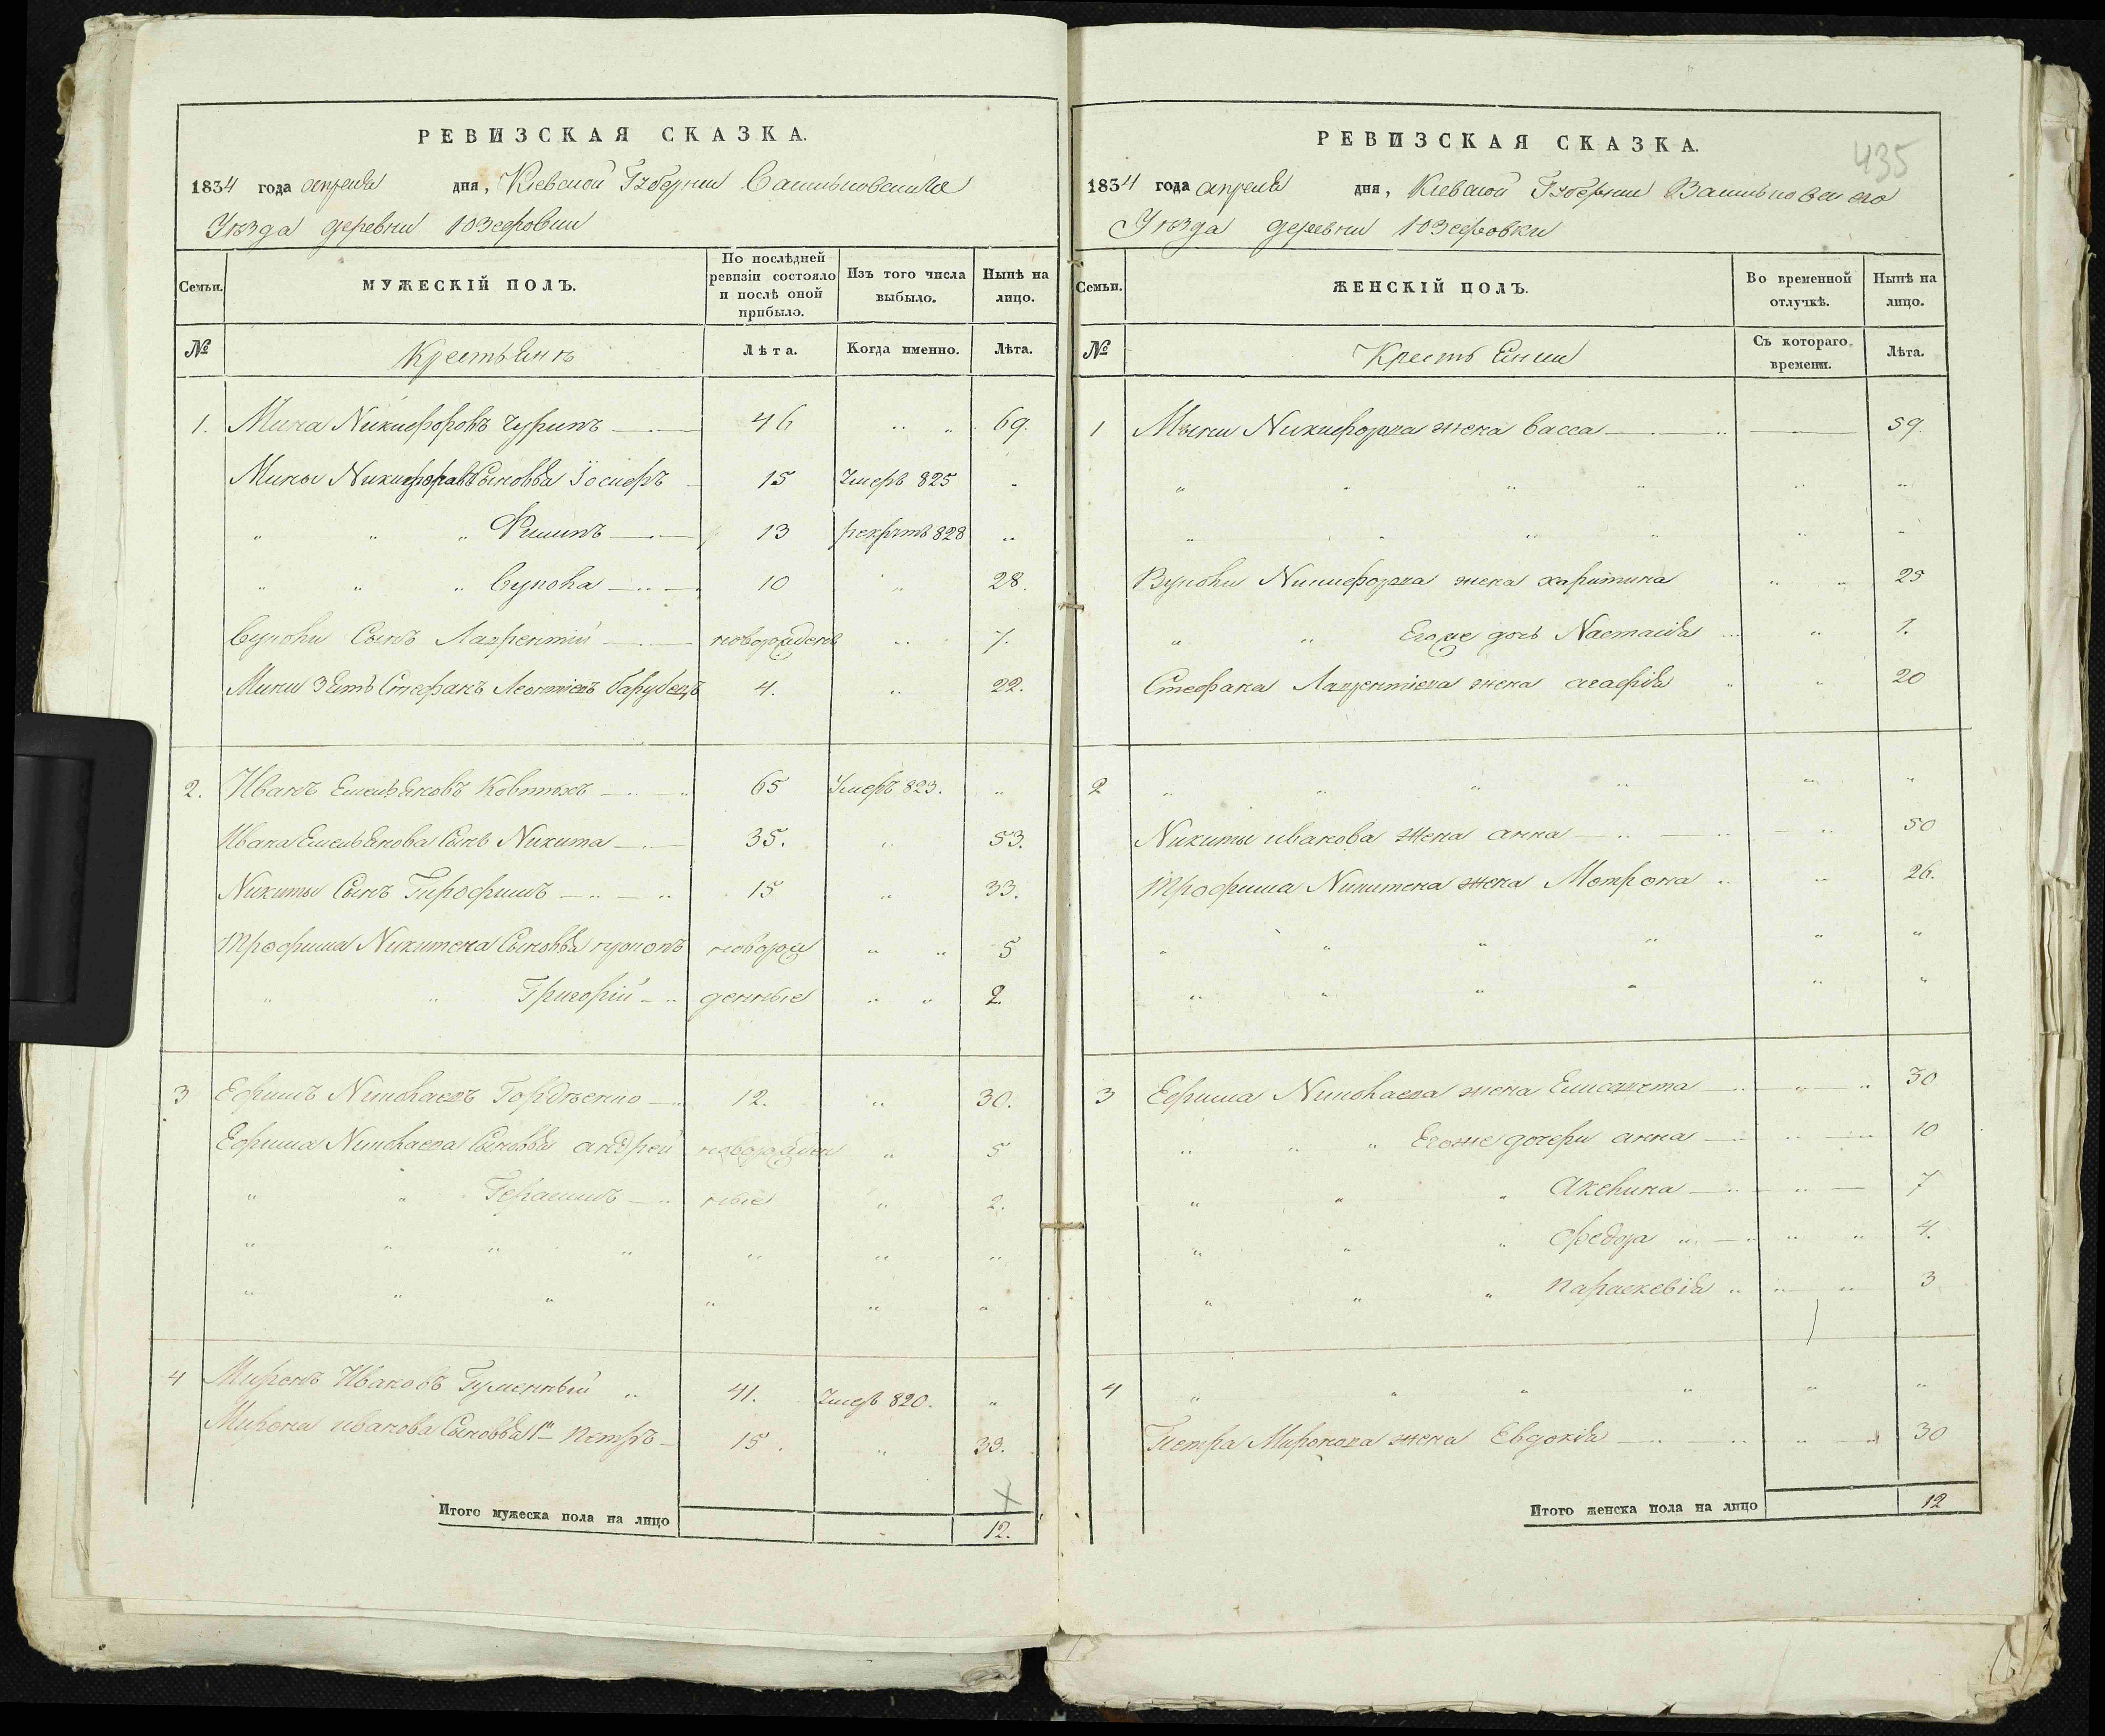 РЕВИЗСКАЯ СКАЗКА.
1834 года апреля дня, Киевской Губернии Васильковскаго
Уезда деревни Юзефовки
Семьи.
МУЖЕСКІЙ ПОЛЪ.
По послѣдней ревизіи состояло и послѣ оной прибыло.
Изъ того числа выбыло.
Нынѣ на лицо.
№ Крестьянъ Лѣта. Когда именно. Лѣта.
1. Мина Никифоровъ 46 " " 69.
Мины Никифорова Сыновья Іосифъ 15 Умеръ 825 "
" " " Филипъ 13 рекрутъ 828 "
" " " Вукола 10 " 28.
Вуколы Сынъ Лаврентій новорожденъ " 7.
Мини Зять Стефанъ Леонтіевъ 4. " 22.
2. Иванъ Емельяновъ Ковтюхъ 65 Умеръ 823. "
Ивана Емельянова Сынъ Никита 35. " 53.
Никиты Сынъ Трофимъ 15 " 33.
Трофима Никитена Сыновья новорож " " 5
" " Григорій денные " " 2.
3 Ефимъ Николаевъ Гордѣенко 12. " 30.
Ефима Николаева Сыновья андрей новорожден " 5
" " Герасимъ ные " 2.
" " " " " " "
" " " " " "
4 Миронъ Ивановъ Гуменный " 41. Умеръ 820. "
Мирона иванова Сыновья 1й петръ 15. " 33.
Итого мужеска пола на лицо 12.
435
РЕВИЗСКАЯ СКАЗКА.
1834 года апреля дня, Киевской Губернии Васильковскаго
Уезда деревни Юзефовки
Семьи.
ЖЕНСКІЙ ПОЛЪ.
Во временной отлучкѣ.
Нынѣ на лицо.
№ Крестьянки Съ котораго времени. Лѣта.
1 Мыны Никифорова жена васса 59.
" " " " " "
" " " " " "
Вуколы Никифорова жена харитина " " 25
" " Егоже дочь Настасія " 1.
Стефана Лаврентіева жена агафія " " 20
2 " " " " " "
Никиты иванова жена анна " 50
Трофима Никитена жена Мотрона " " 26.
" " " " " "
" " " " " "
3 Ефима Николаева жена Елисавета " " 30
" " " Егоже дочери анна " " 10
" " " Акелина " 7
" " " федора " " " 4.
" " " параскевія " " " 3
4 " " " " " "
Петра Миронова жена Евдокія " " 30
Итого женска пола на лицо 12